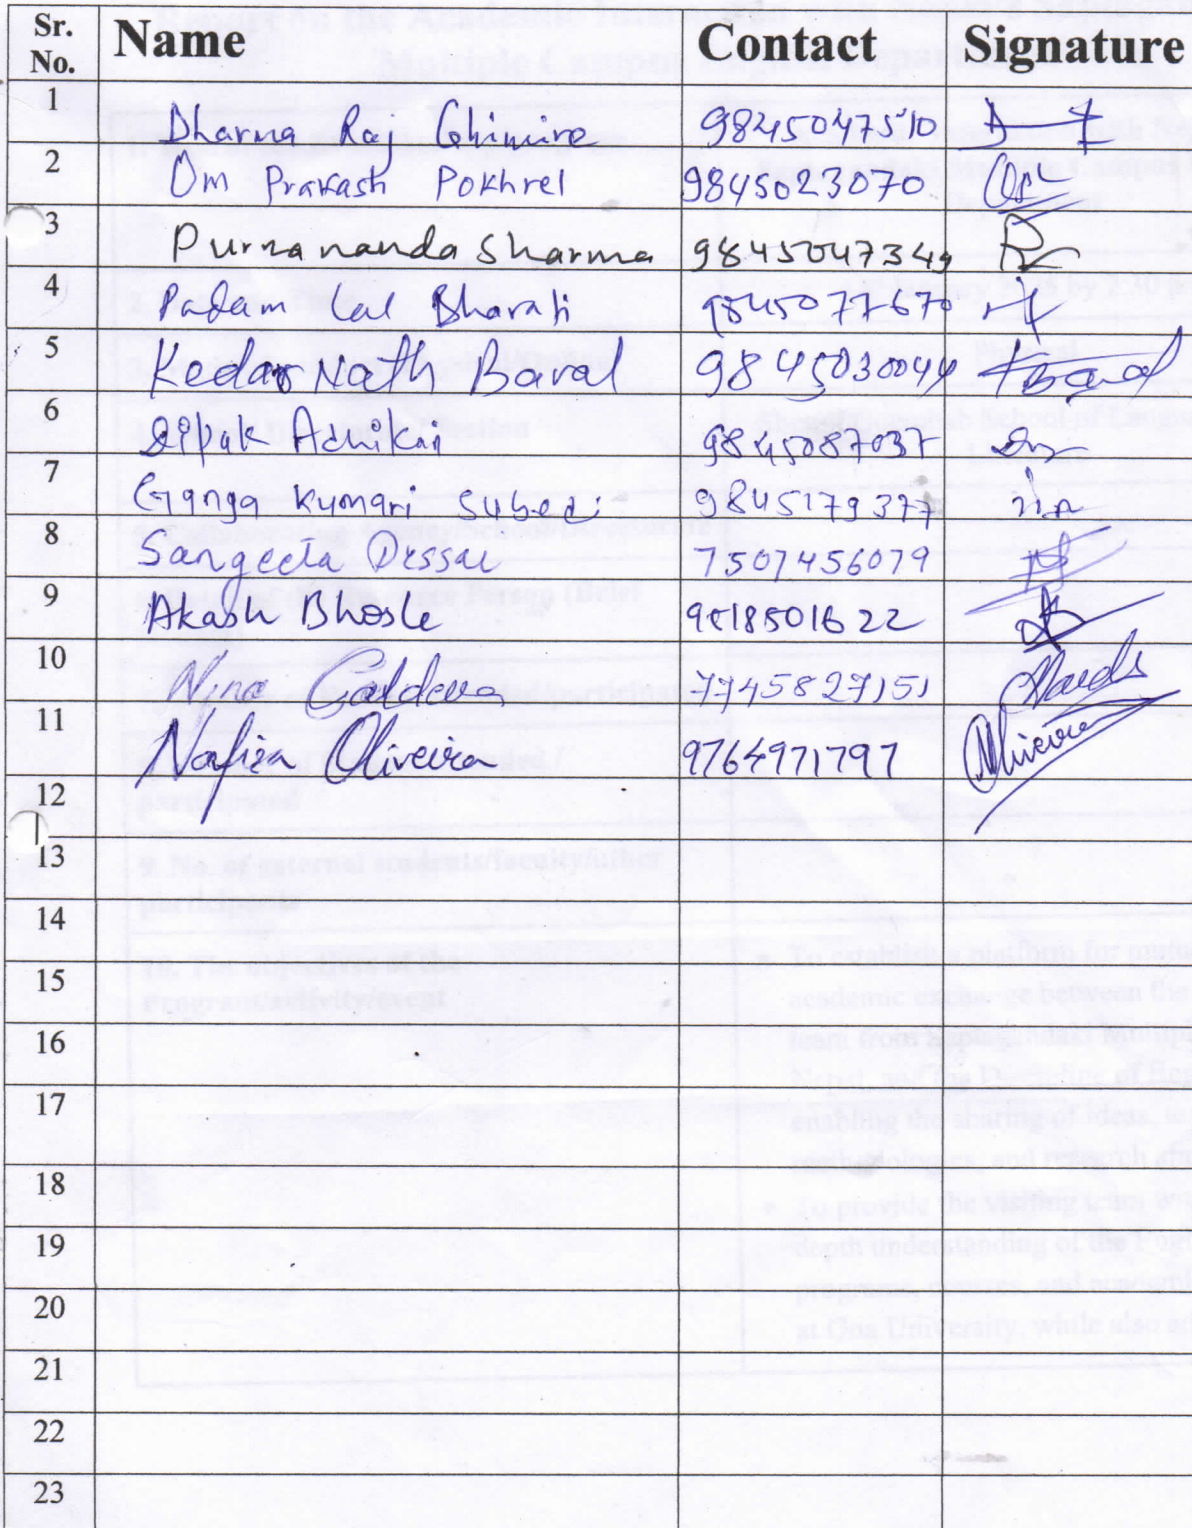 Sr. No. Name Contact Signature
1 Dharma Raj Ghimire 9845047510
2 Om Prakash Pokhrel 9845023070 Om
3 Purnananda Sharma 9845047349
4 Padam Lal Bharati 9845077670
5 Kedar Nath Baral 9845030044 Baral
6 Dipak Adhikari
7 Ganga Kumari Subedi 9845173377
8 Sangeeta Dessai 7507456079
9 Akash Bhosle
10 Caldeira 7745827151
11 Nafisa Oliveira 9764971797 Oliveira
12
13
14
15
16
17
18
19
20
21
22
23